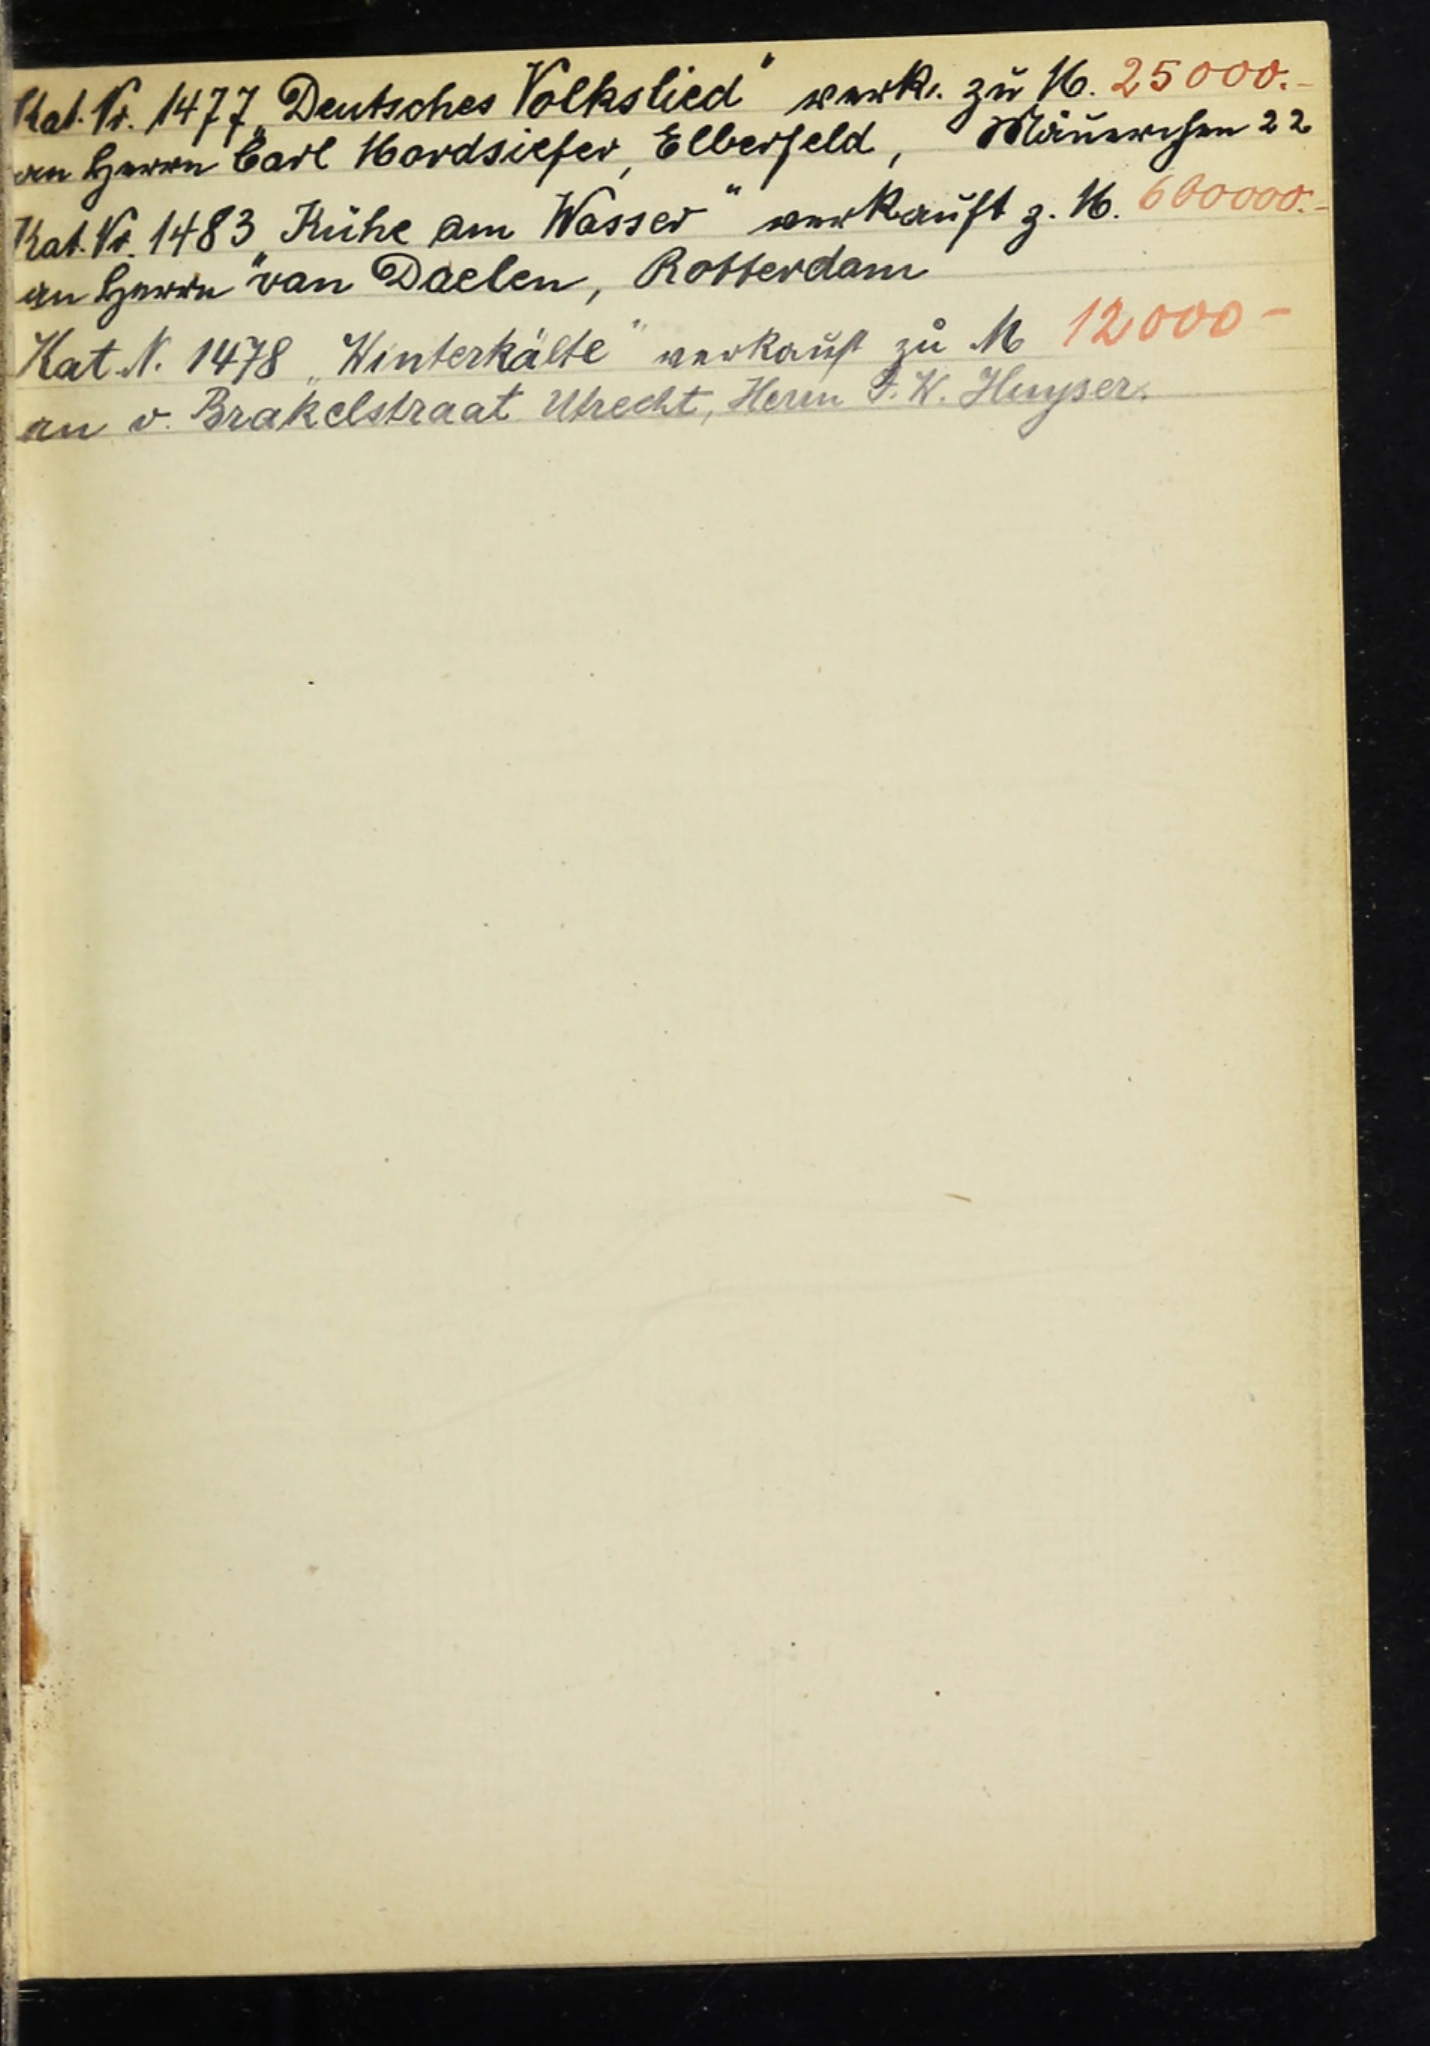 Kat. Nr. 1477 „Deutsches Volkslied“ verk. zu M. 25000.-
an Herrn Carl Hardsiefer, Elberfeld, Mäuerchen 22
Kat. Nr. 1483 „Kühe am Wasser“ verkauft z. M. 600000.-
an Herrn van Daelen, Rotterdam
Kat. N. 1478 „Winterkälte“ verkauft zu M 12000-
an v. Brakelstraat Utrecht, Herrn J. W. Huyser.